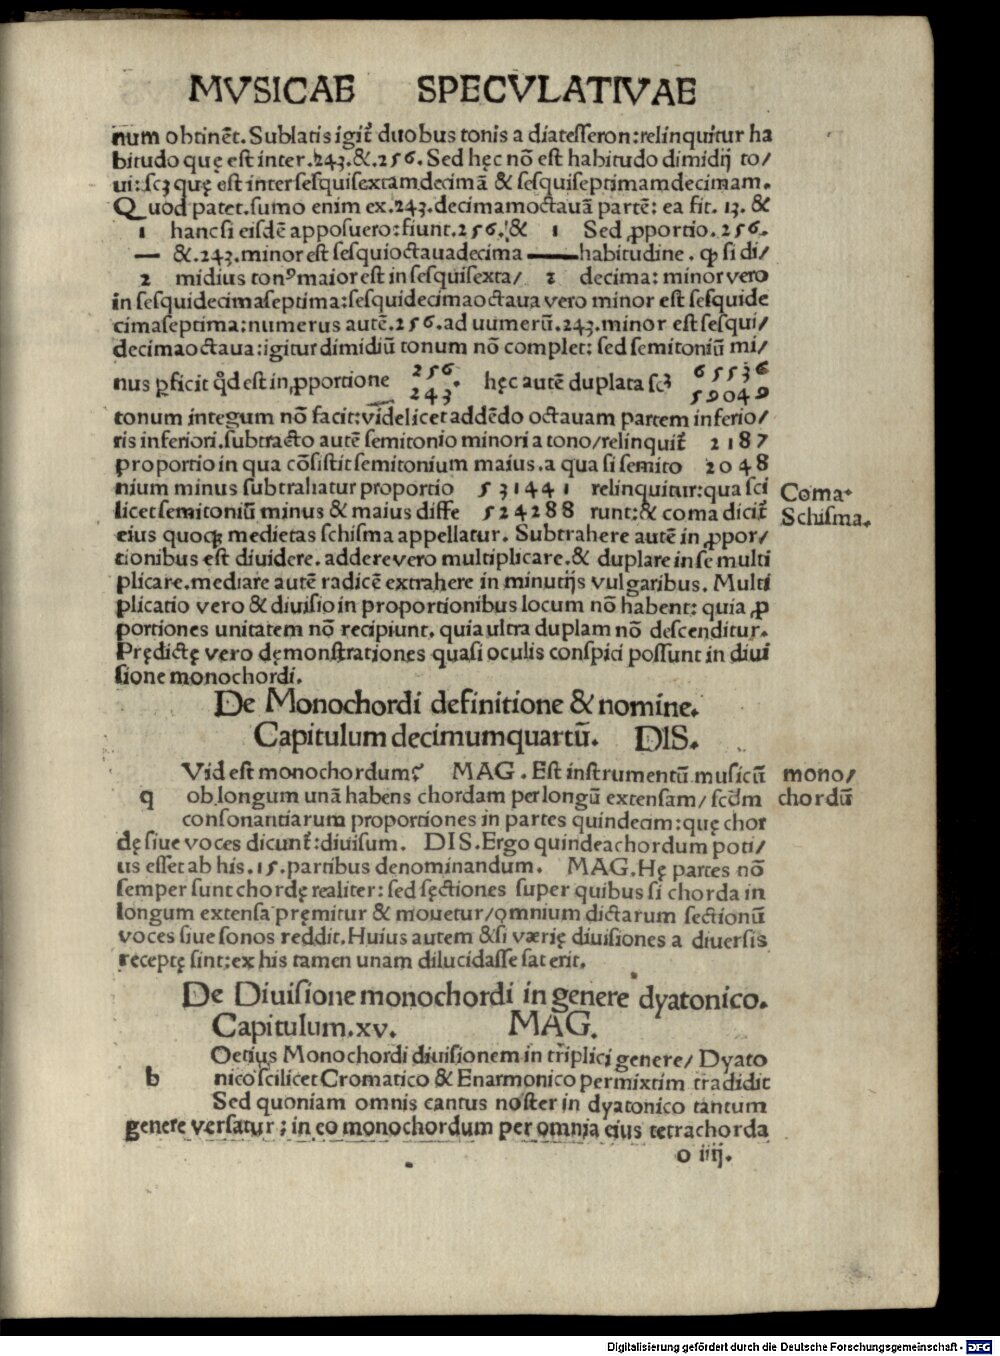 MVSICAE SPECVLATIVAE
num obtinēt. Sublatis igiť duobus tonis a diatesseron: relinquitur ha
bitudo quę est inter .243. &. 256. Sed hęc nō est habitudo dimidij to/
ui: scꝫ quę est inter sesquisextamdecimā & sesquiseptimamdecimam.
Quod patet. sumo enim ex .243. decimamoctauā partē: ea fit. 13. &
1 hanc si eisdē apposuero: fiunt. 256. & 1 Sed ꝓportio. 256.
— &. 243. minor est sesquioctauadecima — habitudine. ꝙ si di/
2 midius tonꝰ maior est in sesquisexta/ 2 decima: minor vero
in sesquidecimaseptima: sesquidecimaoctaua vero minor est sesquide
cimaseptima: numerus autē. 256. ad uumerū. 243. minor est sesqui/
decimaoctaua: igitur dimidiū tonum nō complet: sed semitoniū mi/
nus ꝑficit qd̄ est in ꝓportione 256. hęc autē duplata scꝫ 65536
243 59049
tonum integum nō facit: videlicet addēdo octauam partem inferio/
ris inferiori. subtracto autē semitonio minori a tono/ relinquiť 2187
proportio in qua cōsistit semitonium maius. a qua si semito 2048
nium minus subtrahatur proportio 531441 relinquitur: qua sci
licet semitoniū minus & maius diffe 524288 runt: & coma diciť
Coma.
Schisma.
eius quoqꝫ medietas schisma appellatur. Subtrahere autē in ꝓpor/
tionibus est diuidere. addere vero multiplicare. & duplare in se multi
plicare. mediare autē radicē extrahere in minutijs vulgaribus. Multi
plicatio vero & diuisio in proportionibus locum nō habent: quia ꝓ
portiones unitatem nō recipiunt, quia ultra duplam nō descenditur.
Prędictę vero dęmonstrationes quasi oculis conspici possunt in diui
sione monochordi.
De Monochordi definitione & nomine.
Capitulum decimumquartū. DIS.
Vid est monochordum? MAG. Est instrumentū musicū
q oblongum unā habens chordam per longū extensam/ scd̄m
mono/
chordū
consonantiarum proportiones in partes quindecim: quę chor
dę siue voces dicunť: diuisum. DIS. Ergo quindeachordum poti/
us esset ab his. 15. partibus denominandum. MAG. Hę partes nō
semper sunt chordę realiter: sed sęctiones super quibus si chorda in
longum extensa pręmitur & mouetur/ omnium dictarum sectionū
voces siue sonos reddit. Huius autem & si værię diuisiones a diuersis
receptę sint: ex his tamen unam dilucidasse sat erit.
De Diuisione monochordi in genere dyatonico.
Capitulum. xv. MAG.
Oetius Monochordi diuisionem in triplici genere/ Dyato
b nico scilicet Cromatico & Enarmonico permixtim tradidit
Sed quoniam omnis cantus noster in dyatonico tantum
genere versatur; in eo monochordum per omnia eius tetrachorda
o iiij.
Digitalisierung gefördert durch die Deutsche Forschungsgemeinschaft - DFG